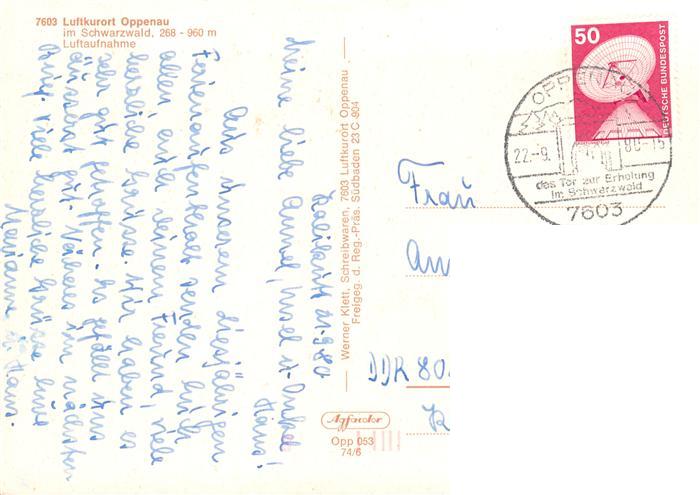 7603 Luftkurort Oppenau
im Schwarzwald, 268 - 960 m
Luftaufnahme
21.9.80
Meine liebe Hans!
Aus unserem diesjährigen
Ferienaufenthalt senden Euch
allen und Freund viele
herzliche Grüsse. Wir haben es
sehr gut getroffen. Es gefällt uns
äusserst gut. Näheres im nächsten
Brief. Viele herzliche Grüsse eure
Marianne u. Hans.
Werner Klett, Schreibwaren, 7603 Luftkurort Oppenau
Freigeg. d. Reg.-Präs. Südbaden 23 C 904
50
DEUTSCHE BUNDESPOST
OPPENAU
22.-9. 80-15
das Tor zur Erholung
im Schwarzwald
7603
Frau
An
DDR 80
Agfacolor
Opp 053
74/6